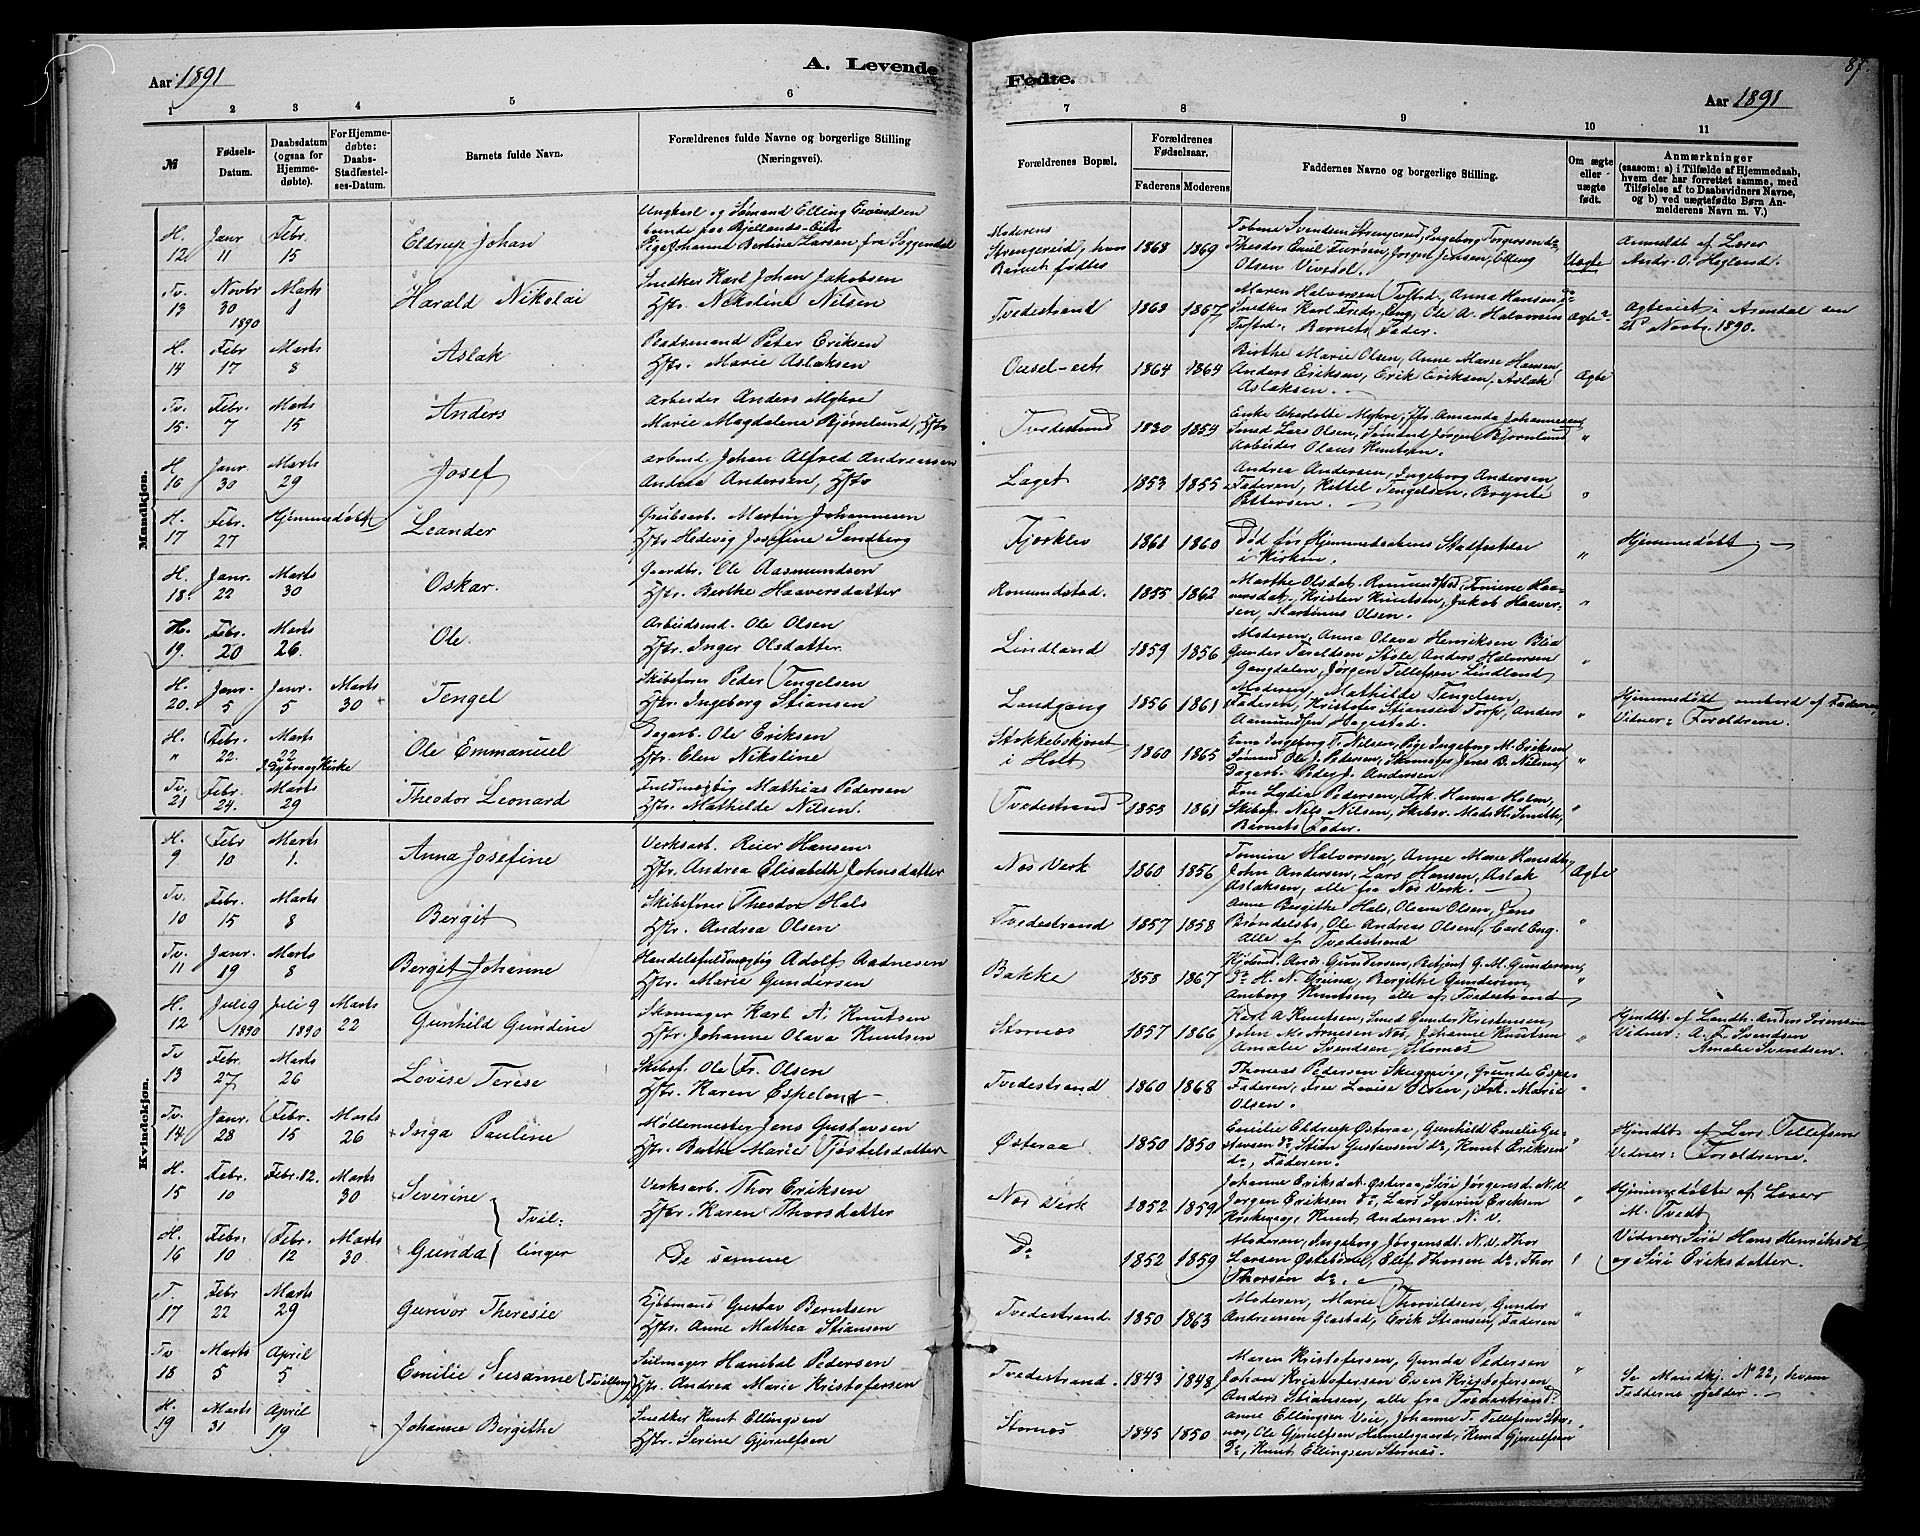 Aar 1891
A. Levende
Fødte.
87.
Aar 1891
1 2 3 4 5 6 7 8 9 10 11
№
Fødsels-
Datum.
Daabsdatum
(ogsaa for
Hjemme-
døbte).
For Hjemme-
døbte:
Daabs-
Stadfæstel-
ses-Datum.
Barnets fulde Navn.
Forældrenes fulde Navne og borgerlige Stilling
(Næringsvei).
Forældrenes Bopæl.
Forældrenes
Fødselsaar.
Faderens Moderens
Faddernes Navne og borgerlige Stilling.
Om ægte
eller
uægte
født.
Anmærkninger
(saasom: a) i Tilfælde af Hjemmedaab,
hvem der har forrettet samme, med
Tilføielse af to Daabsvidners Navne,
og b) ved uægtefødte Børn An-
melderens Navn m. V.)
Mandkjøn.
H. 12 Janr 11 Febr. 15 Eldrup Johan
Ungkarl og Sømand Elling Eivindsen
Pige Johanne Bertine Larsen fra Soggendal
Moderens
Strengereid, hvor
Barnet fødtes
1868 1869
Olsen Vivedal.
Uægte
Anmeldt af Læser
Andr. O. Hegland.
Tv. 13 Novbr 30 1890 Marts 8 Harald Nikolai
Snedker Karl Johan Jakobsen
Hstr. Nikoline Nilsen
Tvedestrand 1863 1867
Maren Halvorsen Tvestrd., Anna Hansen, do
Barnets Fader.
Ægte
Novbr. 1890.
H. 14 Febr 17 Marts 8 Aslak
Pladsmand Peter Eriksen
Hstr. Marie Aslaksen
1864 1864
Birthe Marie Olsen, Anne Marie Hansen,
Anders Eriksen, Erik Eriksen, Aslak
Aslaksen.
Ægte
Tv. 15. Febr. 7 Marts 15 Anders
Arbeider Anders Myhre
Marie Magdalene Bjørnlund, Hstr
Tvedestrand 1820 1854
Enke Charlotte Myhre, Jfr. Amanda Johannesen,
Smed Lars Olsen, Sømand Jørgen Bjørnlund
Arbeider Olaus Knutsen.
"
H 16 Janr. 30 Marts 29 Josef
Arbeid. Johan Alfred Andreassen
Andrea Andersen, Hstr
Laget 1853 1855
Andrea Andersen, Ingeborg Andersen
Faderen, Kittel Tengelsen, Brynte
Pettersen.
"
H. 17 Febr. 27 Hjemmedøbt Leander
Grubearb. Martin Johannesen
Hstr Hedevig Josefine Sandberg
Fjorklev 1861 1860
Død før Hjemmedaabens Stadfestelse
i Kirken
"
Hjemmedøbt
H. 18. Janr. 22 Marts 30 Oskar.
Gaardbr. Ole Aasmundsen
Hstr. Berthe Haaversdatter
Romundstad. 1855 1862
Marthe Olsdat. Romundstad, Tomine Haa-
versdat., Kristen Knutsen, Jakob Haaver-
sen, Martinus Olsen.
"
H. 19. Febr. 20 Marts 26. Ole.
Arbeidsmd. Ole Olsen
Hstr. Inger Olsdatter.
Lindland 1859 1856
Moderen, Anna Olava Henriksen
Gunder Tareldsen Støle, Anders Halvorsen
Gangdalen, Jørgen Tellefsen Lindland
"
H. 20. Janr. 5 Janr. 5 Marts 30 Tengel
Skibsfører Peder Tengelsen
Hstr. Ingeborg Stiansen
Landgang 1856 1861
Moderen, Mathilde Tengelsen,
Faderen, Kristofer Stiansen Torp, Anders
Aamundsen Hagestad.
"
Hjemmedøbt ombord af Faderen,
Vidner: Forældrene.
H. " Febr. 22. Marts 22 Ole Emmanuel
Dagarb. Ole Eriksen
Hstr. Elen Nikoline
i Holt
1860 1865
Ingeborg T. Nilsen, Pige Ingeborg M. Eriksen
Sømand Ole J. Pedersen, Skomager Jens B. Nilsen,
Dagarb. Peder J. Andersen
"
Tv. 21 Febr. 24. Marts 29 Theodor Leonard
Fuldmægtig Mathias Pedersen
Hstr. Mathilde Nilsen.
Tvedestrand 1853 1861
Fru Lydia Pedersen, Frk. Hanna Holm,
Skibsf. Nils Nilsen, Skibsr. Mads H. Smith,
Barnets Fader.
"
Kvindekjøn.
H. 9 Febr 10 Marts 1. Anna Josefine
Verksarb. Reier Hansen
Hstr. Andrea Elisabeth Johnsdatter
Nes Verk 1860 1856
Tomine Halvorsen, Anne Marie Hansdtr,
John Andersen, Lars Hansen, Aslak
Aslaksen, alle fra Nes Verk.
Ægte
Tv. 10 Febr. 15 Marts 8 Bergit
Skibsfører Theodor Hals
Hstr. Andrea Olsen
Tvedestrand 1857 1858
Anne Bergithe Hals, Oleane Olsen, Jens
Brøndelsbo, Ole Andreas Olsen, Carl Eng.
Alle af Tvedestrand
"
Tv. 11 Janr. 19 Marts 8 Bergit Johanne
Handelsfuldmægtig Adolf Aadnesen
Hstr. Marie Gundersen
Bakke 1858 1867
Kjøbmd. Andr. Gundersen, Betjent G. M. Gundersen,
Do H. N. Greind, Bergithe Gundersen,
Aneborg Knutsen, alle af Tvedestrand
"
H. 12 Juli 9 1890 Juli 9 1890 Marts 22 Gunhild Gundine
Skomager Karl A. Knutsen
Hstr. Johanne Olava Knutsen
Stornes 1857 1866
Karl A Knutsen, Smed Gunder Kristensen,
John M. Arnesen Nes, Johanne Knutsen
Amalie Svendsen Stornes
"
Hjmdbt. af Landh. Anders Sørensen
Vidner: A. F. Svendsen
Amalie Svendsen.
Tv 13 Febr. 27 Marts 26 Lovise Terese
Skibsf. Ole Fr. Olsen
Hstr. Karen Espeland
Tvedestrand 1860 1868
Thomas Pedersen Skuggevig, Grunde Espe-
Faderen, Frue Lovise Olsen, Frk. Marie
Olsen.
"
Tv. 14 Janr. 28 Febr. 15 Marts 26 Inga Pauline
Møllemester Jens Gustavsen
Hstr. Berthe Marie Tjøstelsdatter
Østeraa 1850 1850
Emilie Eldrup Østeraa, Gunhild Emelie Gu-
stavsen do, Stian Gustavsen do, Knut Eriksen
do, Faderen.
"
Hjmdbt. af Lars Tellefsen
Vidner: Forældrene.
H. 15 Febr. 10 Febr. 12. Marts 30 Severine
Tvil-
linger
Verksarb. Thor Eriksen
Hstr. Karen Thorsdatter
Nes Verk 1852 1859
Johanne Eriksd. Østeraa, Siri Jørgensd. N.V.
Jørgen Eriksen do, Lars Severin Eriksen
Knut Andersen N. V.
"
Hjemmedøbte af Læser
M. Tvedt
H. 16 Febr. 10 Febr. 12 Marts 30 Gunda
De samme
Do 1852 1859
Moderen, Ingeborg Jørgensdt. N.V. Thor
Larsen Østebødal, Elef Thorsen do, Thor
Thorsen do.
"
Vidner: Siri Hans Henriksdt.
og Siri Eriksdatter.
T. 17 Febr 22 Marts 29 Gunvor Theresie
Kjøbmand Gustav Berntsen
Hstr. Anne Mathea Stiansen
Tvedestrand. 1850 1863
Moderen, Marie Thorvildsen, Gunder
Andreassen Glastad, Erik Stiansen, Faderen
"
Tv 18 Marts 5 April 5 Emilie Susanne (Tvilling)
Seilmager Hanibal Pedersen
Hstr. Andrea Marie Kristofersen
Tvedestrand. 1843 1848
Maren Kristofersen, Gunda Pedersen
Johan Kristofersen Even Kristofersen
Anders Stiansen, alle fra Tvedestrand.
"
Se Mandkj. N 22, hvem
Fadderne gjelder.
H. 19 Marts 31 April 19 Johanne Bergithe
Snedker Knut Ellingsen
Hstr. Serine Gjerulfsen
Stornes 1845 1850
Anne Ellingsen Veie, Johanne T. Tellefsen Stor-
nes, Ole Gjerulfsen Hammelsgaard, Knud Gjerulfsen
Do, Knut Ellingsen Stornes.
"